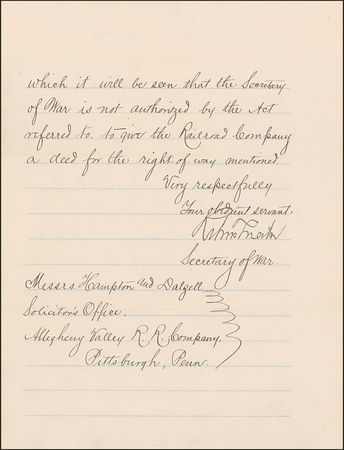 which it will be seen that the Secretary
of War is not authorized by the Act
referred to, to give the Railroad Company
a deed for the right of way mentioned
Very respectfully
Your obedient servant,
Secretary of War.
Messrs. Hampton and Dalzell,
Solicitor's Office,
Allegheny Valley R. R. Company,
Pittsburgh, Penn.